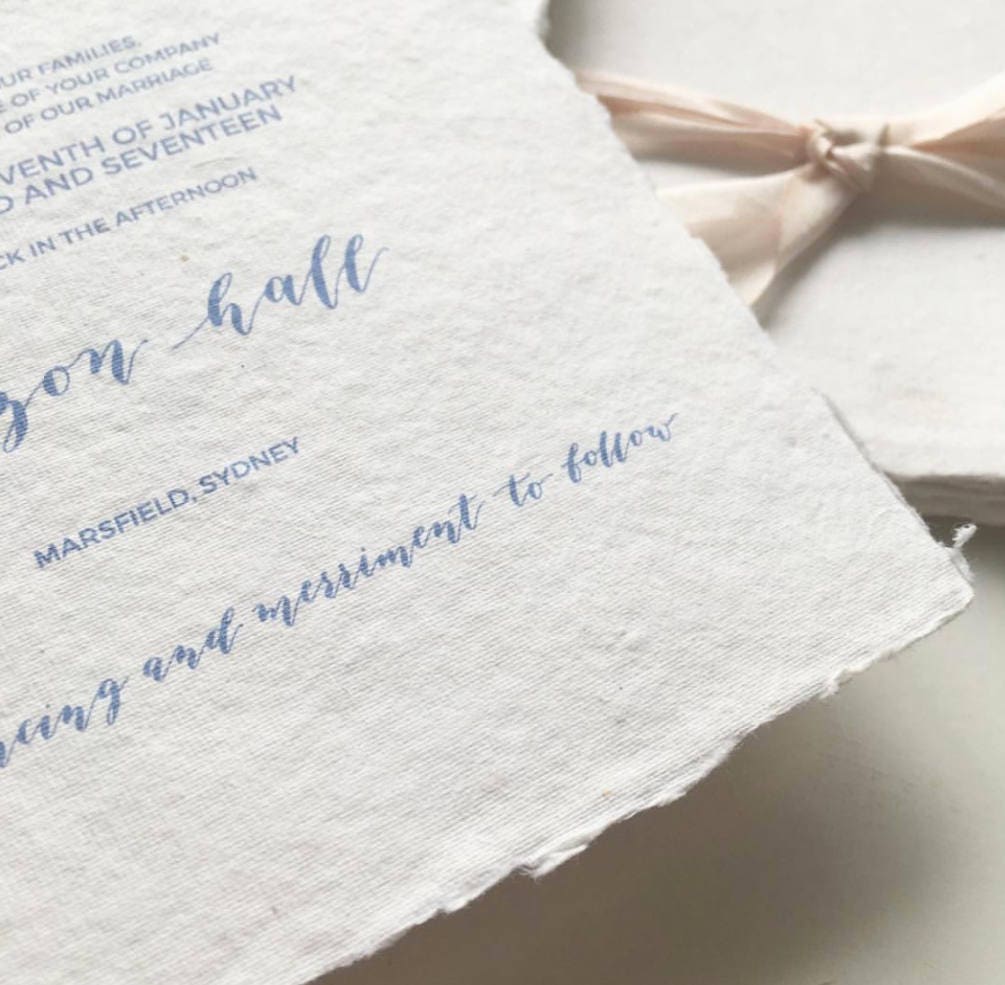 UR FAMILIES,
E OF YOUR COMPANY
OF OUR MARRIAGE
VENTH OF JANUARY
D AND SEVENTEEN
CK IN THE AFTERNOON
zon hall
MARSFIELD, SYDNEY
ncing and merriment to follow